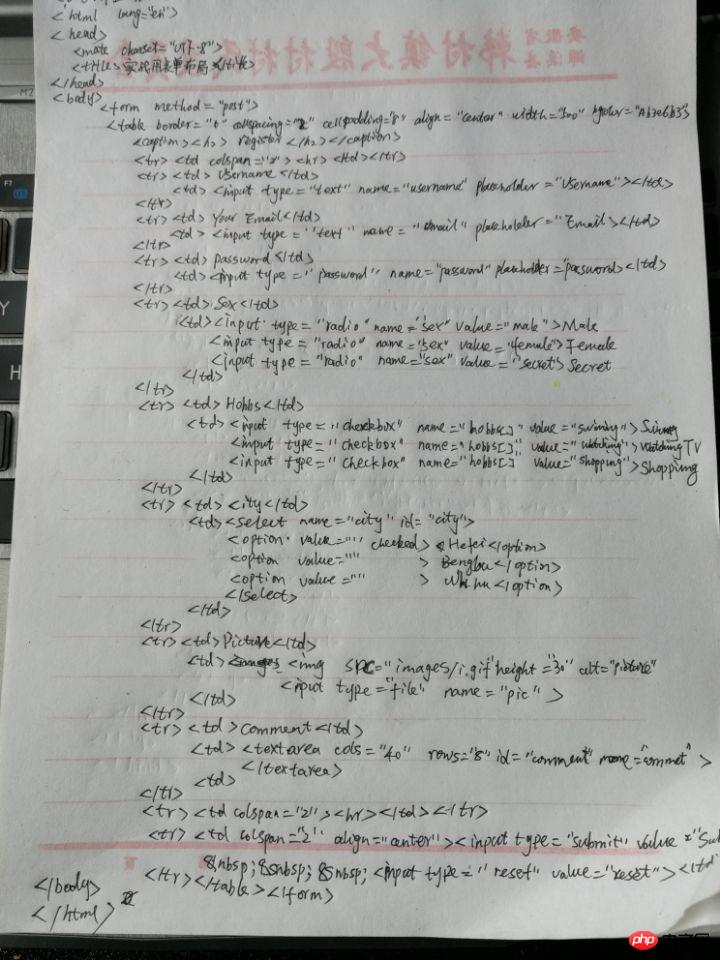 <html lang="en">
<head>
<mate charset="UTF-8">
<title>实战用表单布局</title>
</head>
<body>
<form method="post">
<table border="0" cellspacing="2" cellpadding="8" align="center" width="500" bgcolor="Ab3e6b3">
<caption><h2> register </h2></caption>
<tr> <td colspan="2"> <hr> </td></tr>
<tr> <td> Username </td>
<td> <input type="text" name="username" placeholder="Username"></td>
</tr>
<tr> <td> Your Email</td>
<td> <input type="text" name="email" placeholder="Email></td>
</tr>
<tr> <td> password </td>
<td> <input type="password" name="password" placeholder="password></td>
</tr>
<tr> <td> Sex </td>
<td> <input type="radio" name="sex" value="male">Male
<input type="radio" name="sex" value="female">Female
<input type="radio" name="sex" value="secret">Secret
</td>
</tr>
<tr> <td> Hobbs </td>
<td> <input type="checkbox" name="hobbs[]" value="swiming">
<input type="checkbox" name="hobbs[]" value="watching">watching TV
<input type="checkbox" name="hobbs[]" value="shopping">Shopping
</td>
</tr>
<tr> <td> city </td>
<td> <select name="city" id="city">
<option value="" checked> Hefei</option>
<option value="" > Bengbu </option>
<option value="" > Wuhu </option>
</select>
</td>
</tr>
<tr> <td> Picture </td>
<td> <img src="images/1.gif" height="30" alt="picture"
<input type="file" name="pic">
</td>
</tr>
<tr> <td> comment </td>
<td> <textarea cols="40" rows="8" id="comment" name="commet">
</textarea>
<td>
</tr>
<tr> <td colspan="2"> <hr> </td> </tr>
<tr> <td colspan="2" align="center"> <input type="submit" value="Sub
&nbsp; &nbsp; &nbsp; <input type="reset" value="reset"> </td
</tr></table></form>
</body>
</html>
php